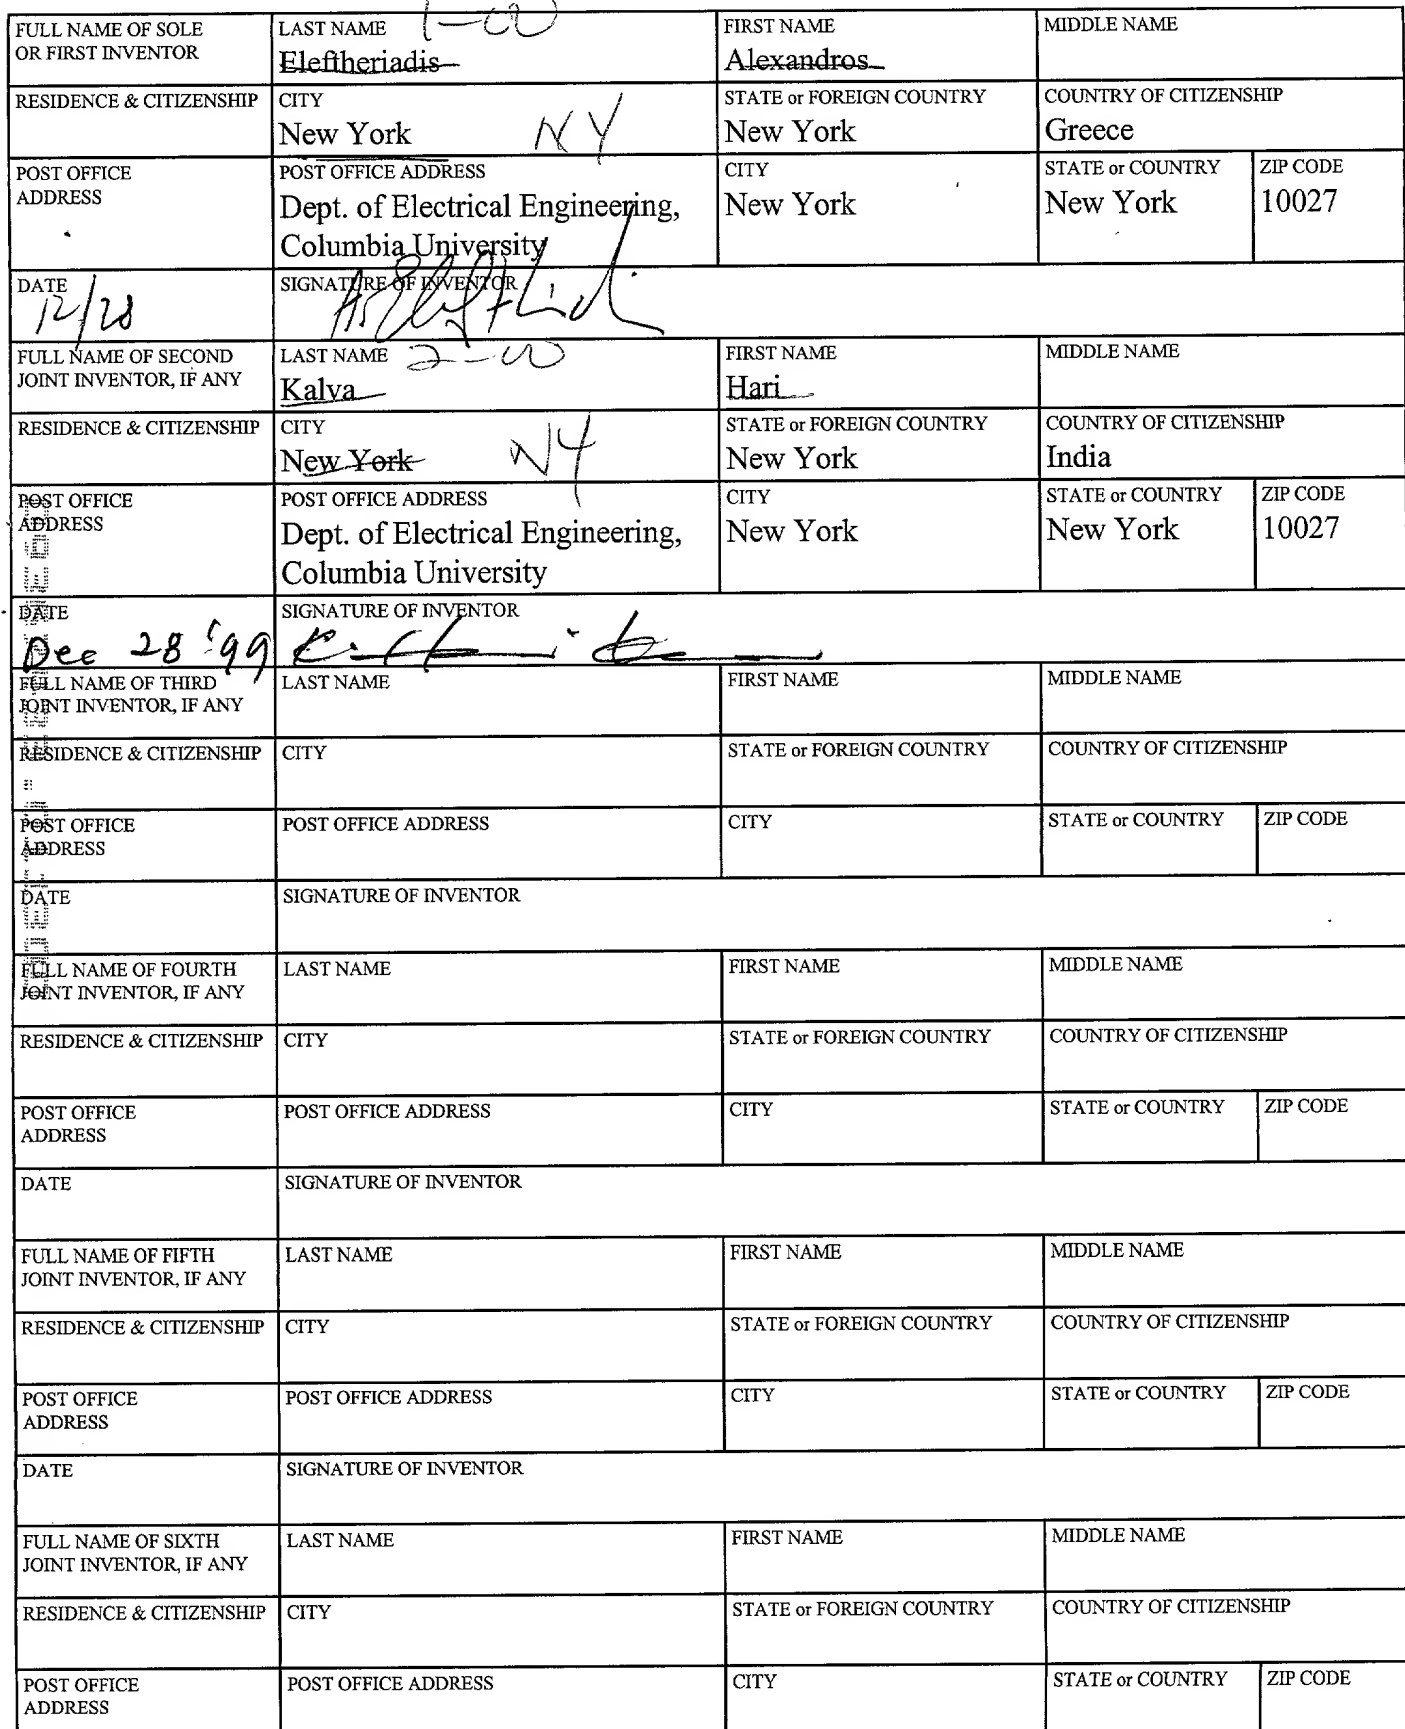 1-00
FULL NAME OF SOLE OR FIRST INVENTOR
LAST NAME
Eleftheriadis
FIRST NAME
Alexandros
MIDDLE NAME
RESIDENCE & CITIZENSHIP
CITY
New York NY
STATE or FOREIGN COUNTRY
New York
COUNTRY OF CITIZENSHIP
Greece
POST OFFICE
ADDRESS
POST OFFICE ADDRESS
Dept. of Electrical Engineering,
Columbia University
CITY
New York
STATE or COUNTRY
New York
ZIP CODE
10027
DATE
12/28
SIGNATURE OF INVENTOR
FULL NAME OF SECOND
JOINT INVENTOR, IF ANY
LAST NAME 2-00
Kalva
FIRST NAME
Hari
MIDDLE NAME
RESIDENCE & CITIZENSHIP
CITY
New York NY
STATE or FOREIGN COUNTRY
New York
COUNTRY OF CITIZENSHIP
India
POST OFFICE
ADDRESS
POST OFFICE ADDRESS
Dept. of Electrical Engineering,
Columbia University
CITY
New York
STATE or COUNTRY
New York
ZIP CODE
10027
DATE
Dec 28 '99
SIGNATURE OF INVENTOR
FULL NAME OF THIRD
JOINT INVENTOR, IF ANY
LAST NAME
FIRST NAME
MIDDLE NAME
RESIDENCE & CITIZENSHIP
CITY
STATE or FOREIGN COUNTRY
COUNTRY OF CITIZENSHIP
POST OFFICE
ADDRESS
POST OFFICE ADDRESS
CITY
STATE or COUNTRY
ZIP CODE
DATE
SIGNATURE OF INVENTOR
FULL NAME OF FOURTH
JOINT INVENTOR, IF ANY
LAST NAME
FIRST NAME
MIDDLE NAME
RESIDENCE & CITIZENSHIP
CITY
STATE or FOREIGN COUNTRY
COUNTRY OF CITIZENSHIP
POST OFFICE
ADDRESS
POST OFFICE ADDRESS
CITY
STATE or COUNTRY
ZIP CODE
DATE
SIGNATURE OF INVENTOR
FULL NAME OF FIFTH
JOINT INVENTOR, IF ANY
LAST NAME
FIRST NAME
MIDDLE NAME
RESIDENCE & CITIZENSHIP
CITY
STATE or FOREIGN COUNTRY
COUNTRY OF CITIZENSHIP
POST OFFICE
ADDRESS
POST OFFICE ADDRESS
CITY
STATE or COUNTRY
ZIP CODE
DATE
SIGNATURE OF INVENTOR
FULL NAME OF SIXTH
JOINT INVENTOR, IF ANY
LAST NAME
FIRST NAME
MIDDLE NAME
RESIDENCE & CITIZENSHIP
CITY
STATE or FOREIGN COUNTRY
COUNTRY OF CITIZENSHIP
POST OFFICE
ADDRESS
POST OFFICE ADDRESS
CITY
STATE or COUNTRY
ZIP CODE